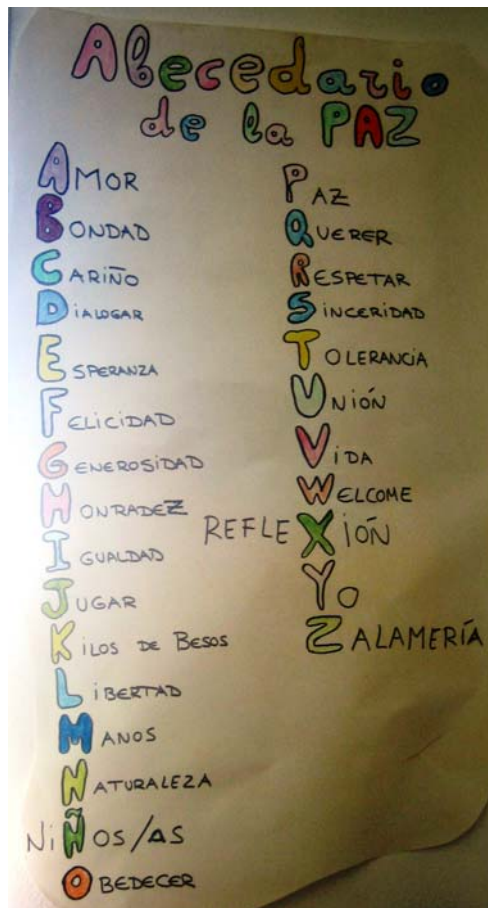 Abecedario
de la PAZ
AMOR
BONDAD
CARIÑO
DIALOGAR
ESPERANZA
FELICIDAD
GENEROSIDAD
HONRADEZ
IGUALDAD
JUGAR
KILOS DE BESOS
LIBERTAD
MANOS
NATURALEZA
NiÑOS/AS
OBEDECER
PAZ
QUERER
RESPETAR
SINCERIDAD
TOLERANCIA
UNIÓN
VIDA
WELCOME
REFLEXIÓN
YO
ZALAMERÍA